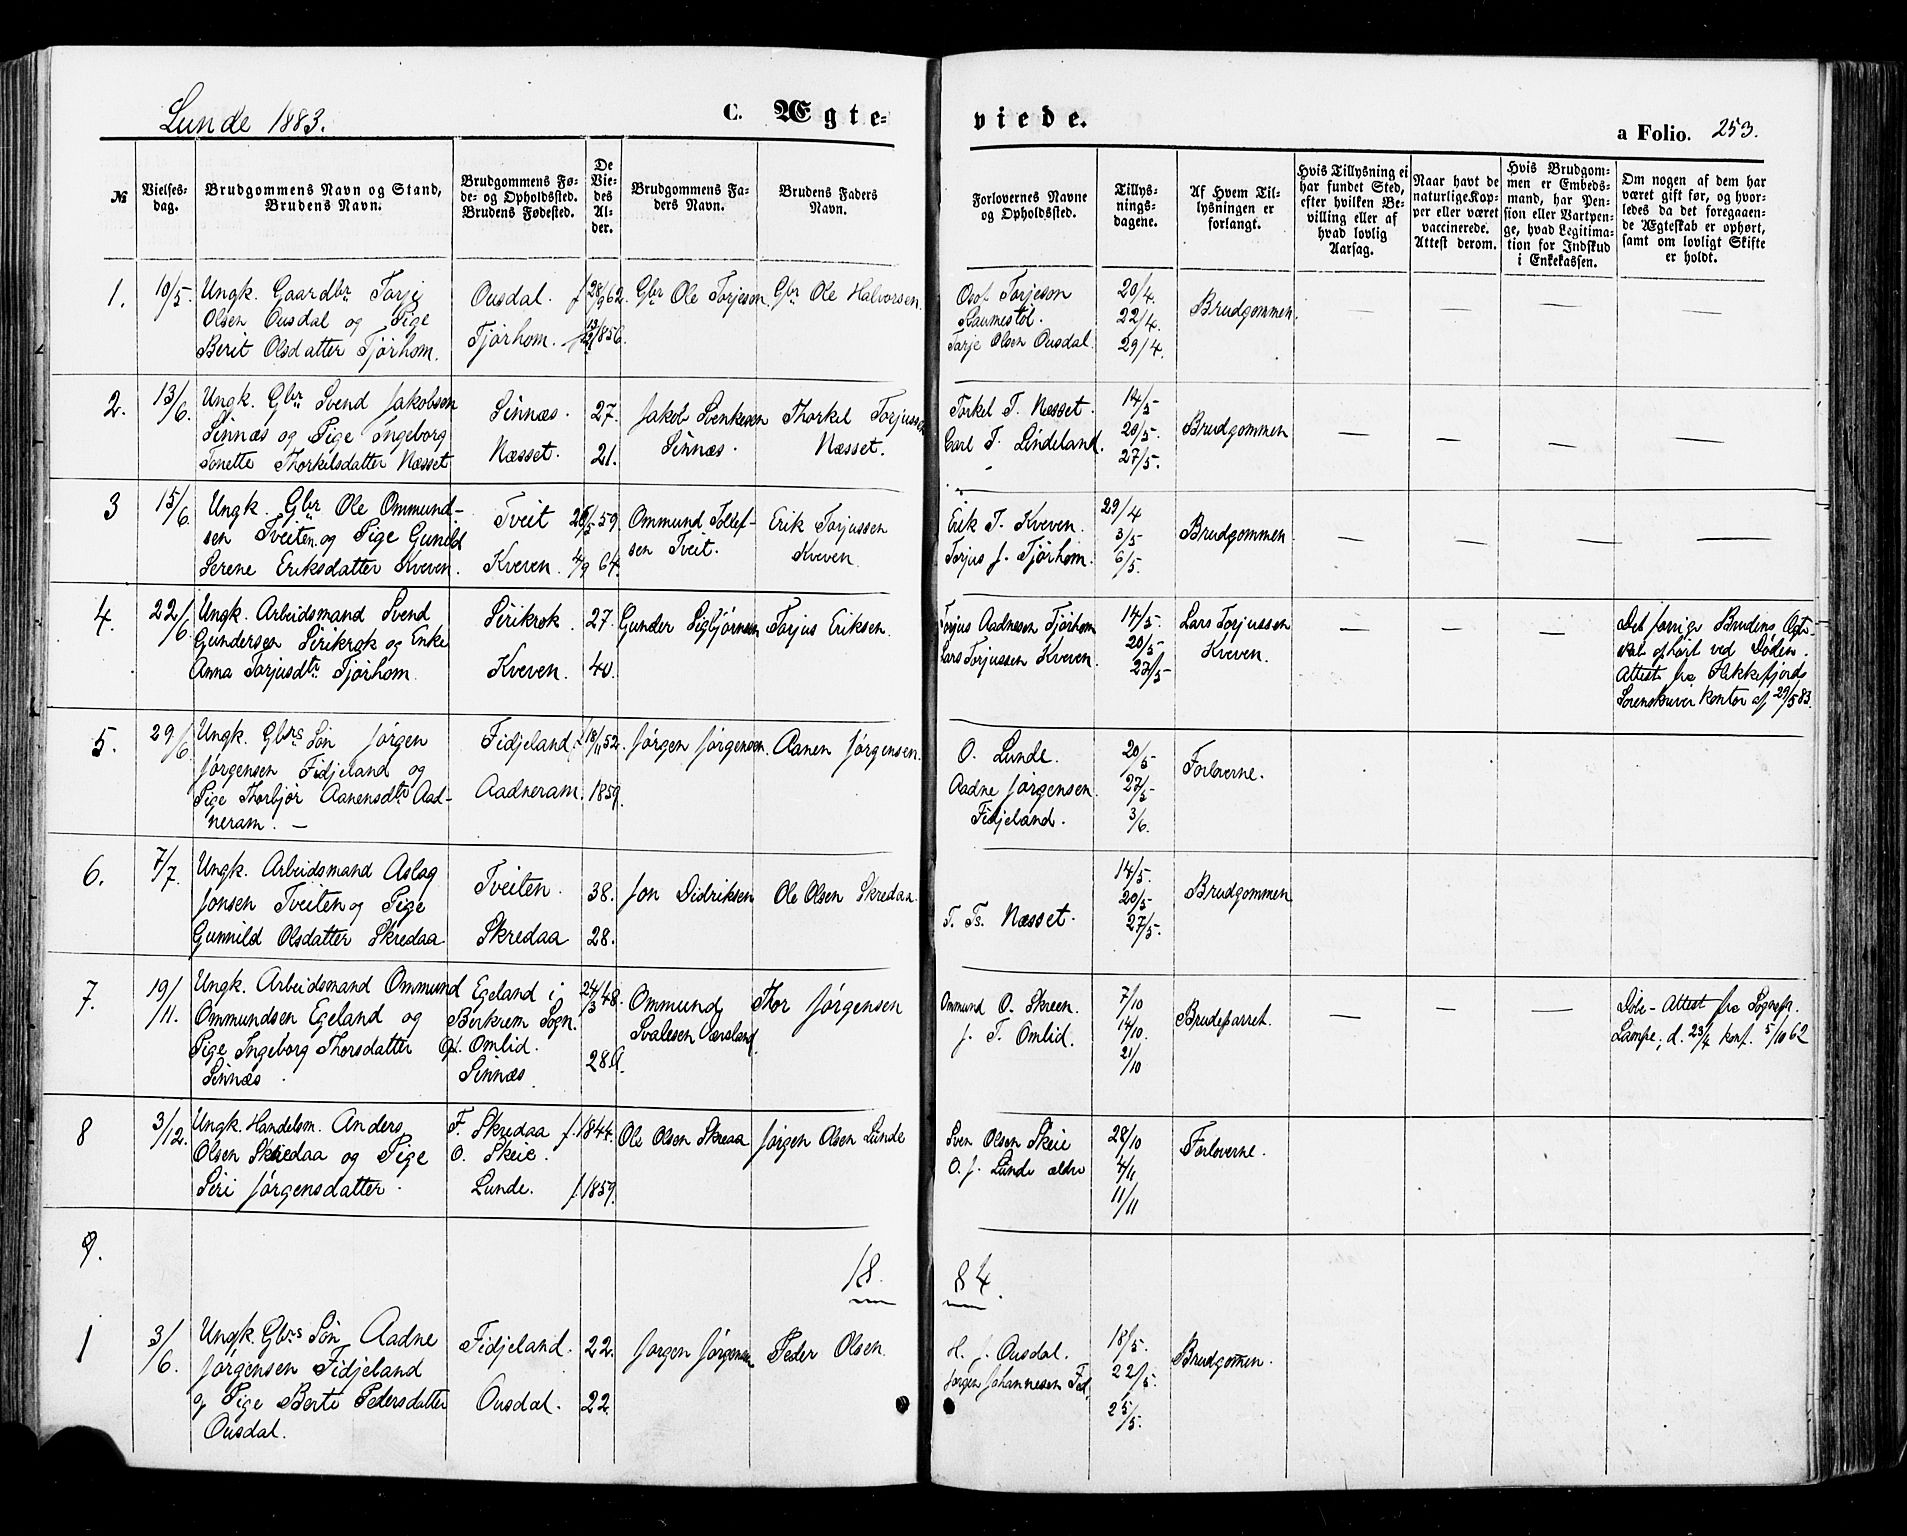 Lunde 1883.
C. Ægte= viede.
a Folio. 253.
№
Vielses-
dag.
Brudgommens Navn og Stand,
Brudens Navn.
Brudgommens Fø-
de- og Opholdssted.
Brudens Fødested.
De
Vie-
des
Al-
der.
Brudgommens Fa-
ders Navn.
Brudens Faders
Navn.
Forlovernes Navne
og Opholdssted.
Tillys-
nings-
dagene.
Af Hvem Til-
lysningen er
forlangt.
Hvis Tillysning ei
har fundet Sted,
efter hvilken Be-
villing eller af
hvad lovlig
Aarsag.
Naar havt de
naturlige Kop-
per eller været
vaccinerede.
Attest derom.
Hvis Brudgom-
men er Embeds-
mand, har Pen-
sion eller Vartpen-
ge, hvad Legitima-
tion for Indskud
i Enkekassen.
Om nogen af dem har
været gift før, og hvor-
ledes da det foregaaen-
de Ægteskab er ophørt,
samt om lovligt Skifte
er holdt.
1. 10/5. Ungk. Gaardbr. Torje Ousdal. f 28/9 62. Gbr Ole Torjeson. Gbr Ole Halvorsen. Osof Torjeson 20/4. Brudgommen. — — — —
Olsen Ousdal og Pige Raumestøl. 22/4.
Berit Olsdatter Tjørhom. Tjørhom. 1856. Torje Olsen Ousdal. 29/4.
2. 13/6. Ungk. Gbr Svend Jakobsen Sinnæs. 27. Jakob Svenkesen Thorkel Torjussen Torkel T. Næsset. 14/5. Brudgommen — — — —
Sinnæs og Pige Ingeborg Sinnæs. Næsset. Carl T. Lindeland. 20/5.
Tonette Thorkelsdatter Næsset Næsset. 21. 27/5.
3 15/6. Ungk. Gbr Ole Ommund- Tveit 59. Ommund Tollef- Erik Torjussen Erik T. Kveven. 29/4 Brudgommen. — — — —
sen Tveiten og Pige Gunild sen Tveit. Kveven. Torjus J. Tjørhom. 3/5
Serene Eriksdatter Kveven. Kveven. 4/9 64. 6/5.
4. 22/6 Ungk. Arbeidsmand Svend Sirikrok. 27. Gunder Sigbjørnsen Torjus Eriksen. Torjus Aadnesen Tjørhom 14/5. Lars Torjussen — — — Det forrige Brudens Ægte-
Gundersen Sirikrok og Enke Lars Torjussen Kveven. 20/5. Kveven. ophørt ved Døden.
Anna Torjusdtr. Tjørhom. Kveven. 40. 27/5 Attest fra Flekkefjords
Sorenskriver kontor af 29/5 83.
5. 29/6 Ungk. Gbrs Søn Jørgen Fidjeland. 18/11 52. Jørgen Jørgensen. Aanen Jørgensen. O. Lunde. 20/5 Forloverne.
Jørgensen Fidjeland og Aadne Jørgensen 27/5
Pige Thorbjør Aanensdtr. Aad- Aadneram. 1859. Fidjeland. 3/6.
neram. —
6. 7/7. Ungk. Arbeidsmand Aslag Tveiten. 38. Jon Didriksen Ole Olsen Skredaa. 14/5. Brudgommen
Jonsen Tveiten og Pige T. Ts. Næsset. 20/5
Gunnild Olsdatter Skredaa Skredaa 28. 27/5.
7. 19/11. Ungk. Arbeidsmand Ommund Egeland i 24/3 48. Ommund Thor Jørgensen Ommund O. Skreen. 7/10 Brudeparret. — — — Døbe-Attest fra Sognepr.
Ommundsen Egeland og Birkrem Sogn. Svalesen J. T. Omlid. 14/10. Lampe, d. 23/4 konf. 5/10 62
Pige Ingeborg Thorsdatter Op. Omlid. 21/10
Sinnæs. Sinnæs. 28
8 3/12. Ungk. Handelsm. Anders F. Skredaa f. 1844. Ole Olsen Skreaa Jørgen Olsen Lunde Sven Olsen Skeie 28/10 Forloverne.
Olsen Skredaa og Pige O. Skeie. O. J. Lunde ældre 4/11
Siri Jørgensdatter. Lunde. f. 1859. 11/11
9.
18 84.
1 3/6. Ungk. Gbrs Søn Aadne Fidjeland. 22. Jørgen Jørgensen Peder Olsen. H. J. Ousdal. 18/5. Brudgommen.
Jørgensen Fidjeland Jørgen Johannesen Fid. 22/5.
og Pige Berte Pedersdatter Ousdal. 22. 25/5.
Ousdal.